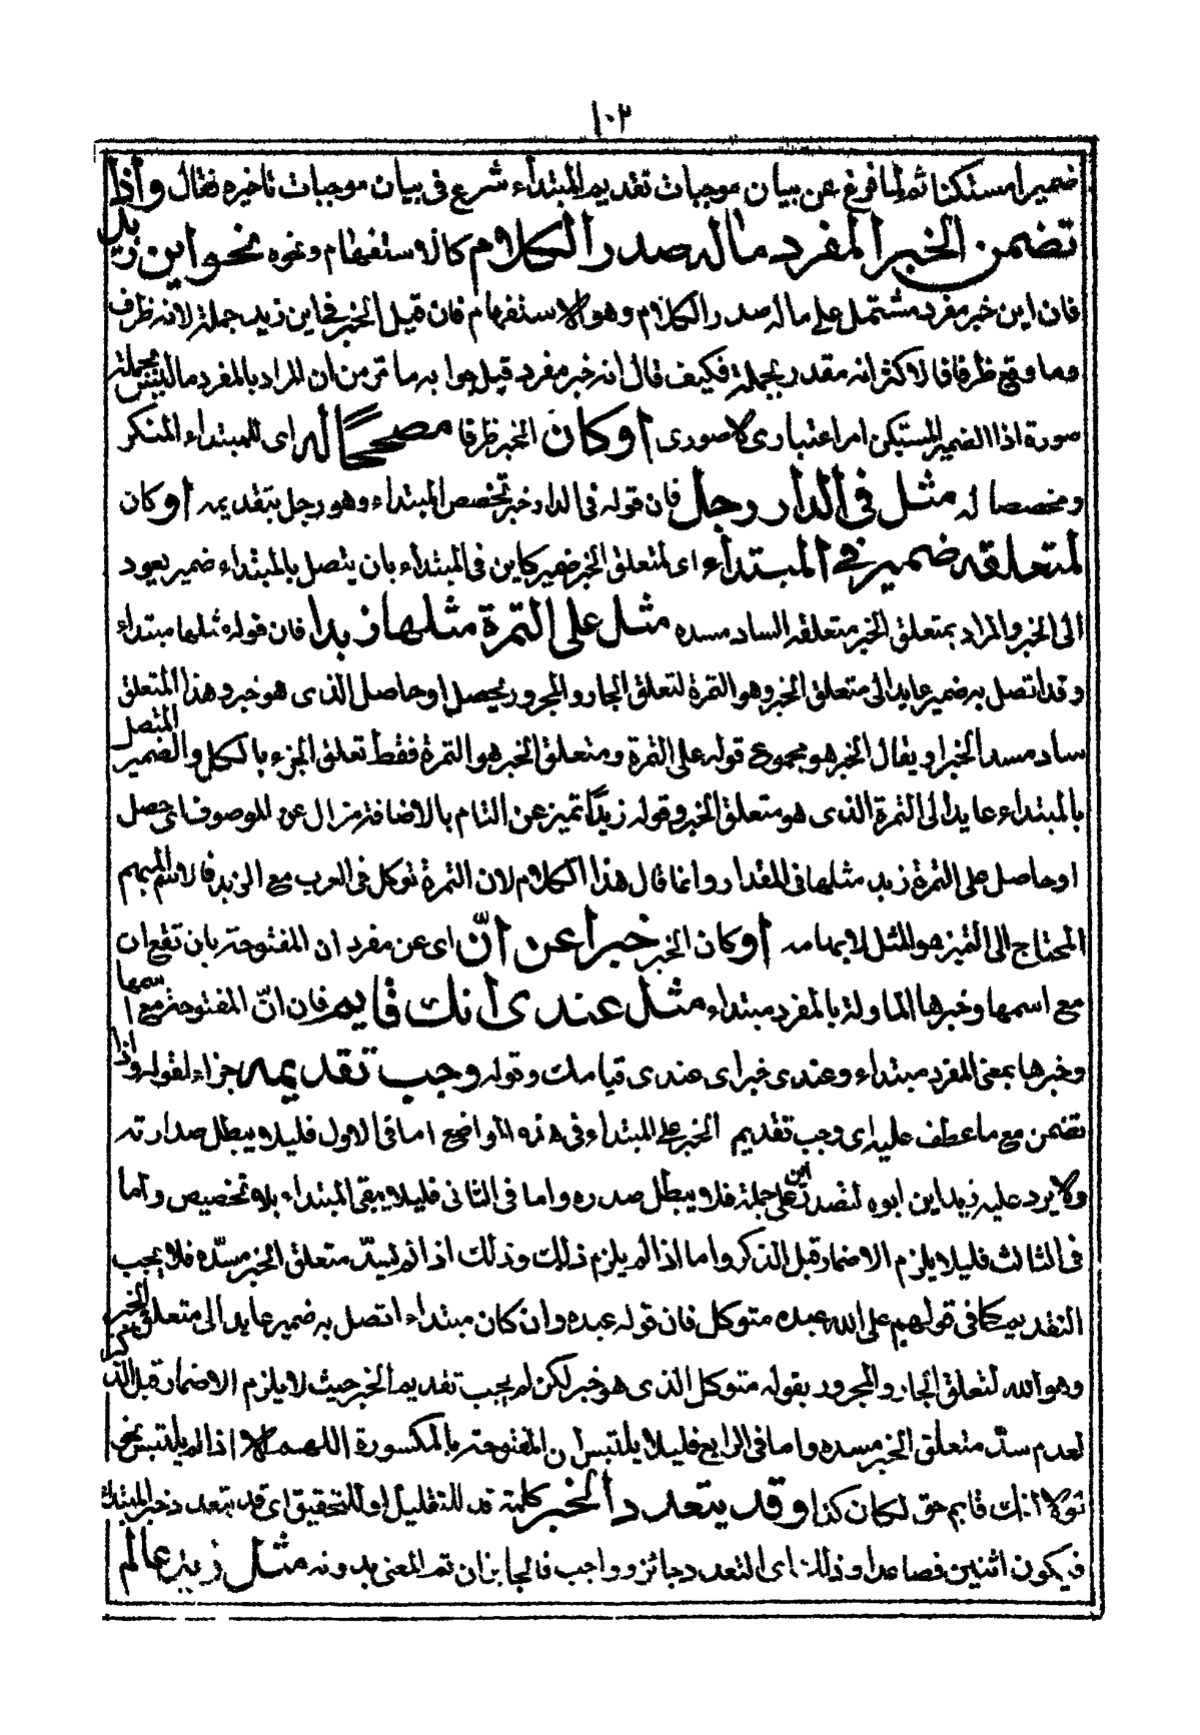 ١٠٢
ضميرا مستكنا ثم لما فرغ عن بيان موجبات تقديم المبتداء شرع فى بيان موجبات تاخيره فقال واذا
تضمن الخبر المفرد ما له صدر الكلام كالاستفهام ونحوه نحو اين زيد
فان اين خبر مفرد مشتمل على ما له صدر الكلام وهو الاستفهام فان قيل الخبر فى اين زيد جملة لانه ظرف
وما وقع ظرفا فالاكثر انه مقدر بجملة فكيف قال انه خبر مفرد قيل جوابه ما مر من ان المراد بالمفرد ما ليس بجملة
صورة اذا الضمير المستكن امر اعتبارى لا صورى او كان الخبر ظرفا مصححًا له اى للمبتداء المنكر
ومخصصا له مثل فى الدار رجل فان قوله فى الدار خبر تخصص المبتداء وهو رجل بتقديمه او كان
لمتعلقه ضمير فى المبتداء اى لمتعلق الخبر ضمير كاين فى المبتداء بان يتصل بالمبتداء ضمير يعود
الى الخبر والمراد بمتعلق الخبر متعلقه الساد مسده مثل على التمرة مثلها زبدا فان قوله مثلها مبتداء
وقد اتصل به ضمير عايد الى متعلق الخبر وهو التمرة لتعلق الجار والمجرور بحصل او حاصل الذى هو خبر وهذا المتعلق
ساد مسد الخبر او يقال الخبر هو مجموع قوله على التمرة ومتعلق الخبر هو التمرة فقط تعلق الجزء بالكل والضمير المتصل
بالمبتداء عايد الى التمرة الذى هو متعلق الخبر وقوله زبدًا تميز عن التام بالاضافة مزال عن الموصوف اى حصل
او حاصل على التمرة زبد مثلها فى المقدار وانما قال هذا الكلام لان التمرة توكل فى العرب مع الزبد فالاسم المبهم
المحتاج الى التميز هو المثل لابهامه او كان الخبر خبرا عن انّ اى عن مفرد ان المفتوحة بان تقع ان
مع اسمها وخبرها الماولة بالمفرد مبتداء مثل عندى انك قايم فان انّ المفتوحة مع اسمها
وخبرها بمعنى المفرد مبتداء وعندى خبر اى عندى قيامك وقوله وجب تقديمه جزاء لقوله واذا
تضمن مع ما عطف عليه اى وجب تقديم الخبر على المبتداء فى هذه المواضع اما فى الاول فليلا يبطل صدارته
ولا يرد عليه زيد اين ابوه لتصدر اين على جملة فلا يبطل صدره واما فى الثانى فليلا يبقى المبتداء بلا تخصيص واما
فى الثالث فليلا يلزم الاضمار قبل الذكر واما اذا لم يلزم ذلك وذلك اذا لم يسدّ متعلق الخبر مسدّه فلا يجب
التقديم كما فى قولهم على الله عبده متوكل فان قوله عبده وان كان مبتداء اتصل به ضمير عايد الى متعلق الخبر
وهو الله لتعلق الجار والمجرور بقوله متوكل الذى هو خبر لكن لم يجب تقديم الخبر حيث لا يلزم الاضمار قبل الذكر
لعدم سدّ متعلق الخبر مسده واما فى الرابع فليلا يلتبس ان المفتوحة بالمكسورة اللهم الا اذا لم يلتبس نحو
لولا انك قايم حق لكان كذا وقد يتعدد الخبر كلمة قد للتقليل او للتحقيق اى قد يتعدد خبر المبتداء
فيكون اثنين فصاعدا وذلك اى التعدد جائز وواجب فالجايز ان تم المعنى بدونه مثل زيد عالم